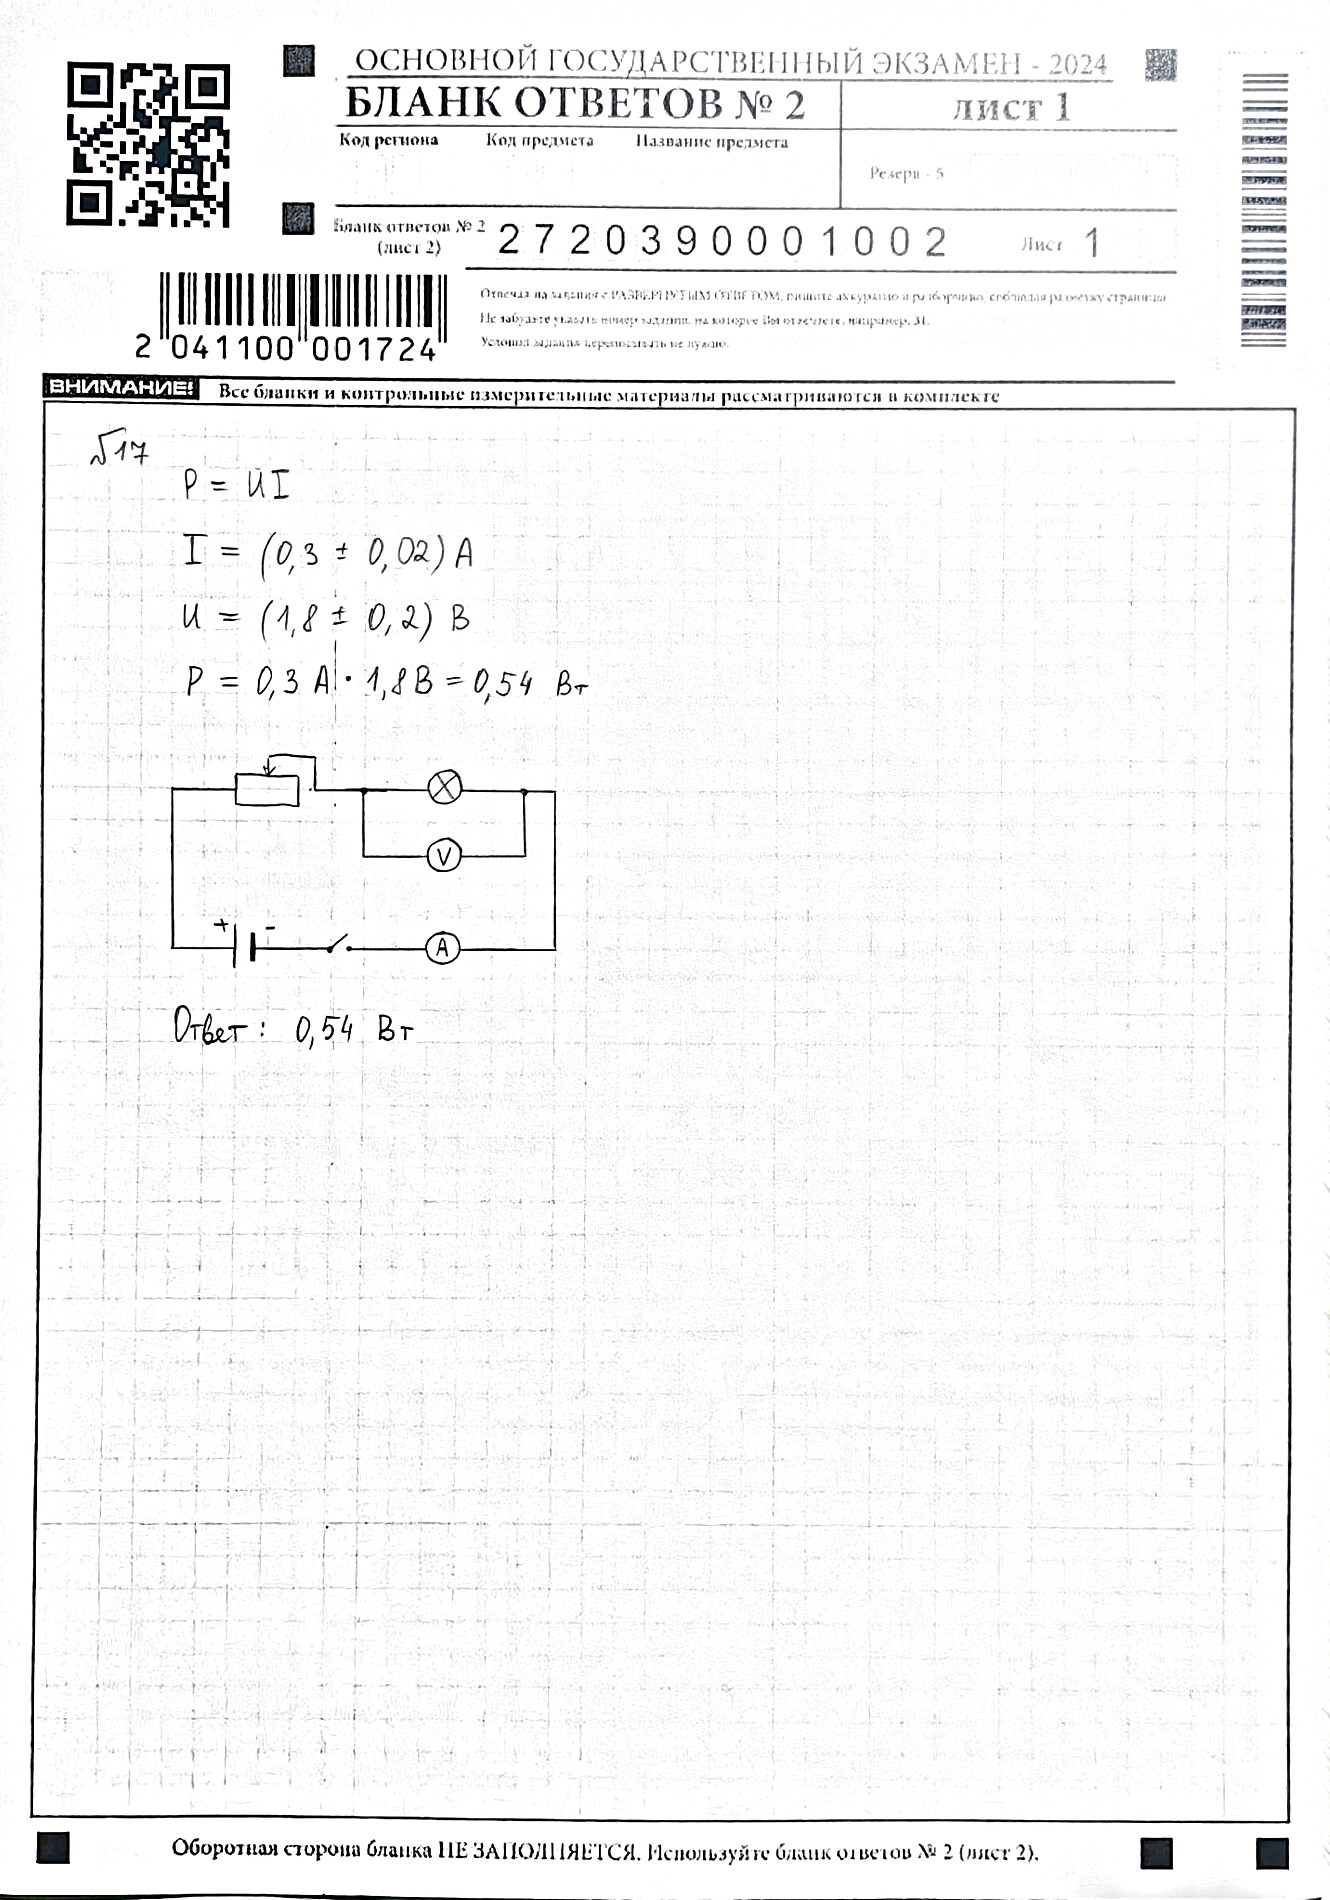 ОСНОВНОЙ ГОСУДАРСТВЕННЫЙ ЭКЗАМЕН - 2024
БЛАНК ОТВЕТОВ № 2
ЛИСТ 1
Код региона Код предмета Название предмета
Резерв - 5
Бланк ответов № 2
(лист 2)
2720390001002
Лист 1
Отвечая на задания с РАЗВЕРНУТЫМ ОТВЕТОМ, пишите аккуратно и разборчиво, соблюдая разметку страницы
Не забудьте указать номер задания, на которое Вы отвечаете, например, 31.
Условия задания переписывать не нужно.
2 041100 001724
ВНИМАНИЕ! Все бланки и контрольные измерительные материалы рассматриваются в комплекте
√17
P = UI
I = (0,3 ± 0,02) A
U = (1,8 ± 0,2) В
P = 0,3 A · 1,8 В = 0,54 Вт
X
V
+ -
A
Ответ: 0,54 Вт
Оборотная сторона бланка НЕ ЗАПОЛНЯЕТСЯ. Используйте бланк ответов № 2 (лист 2).